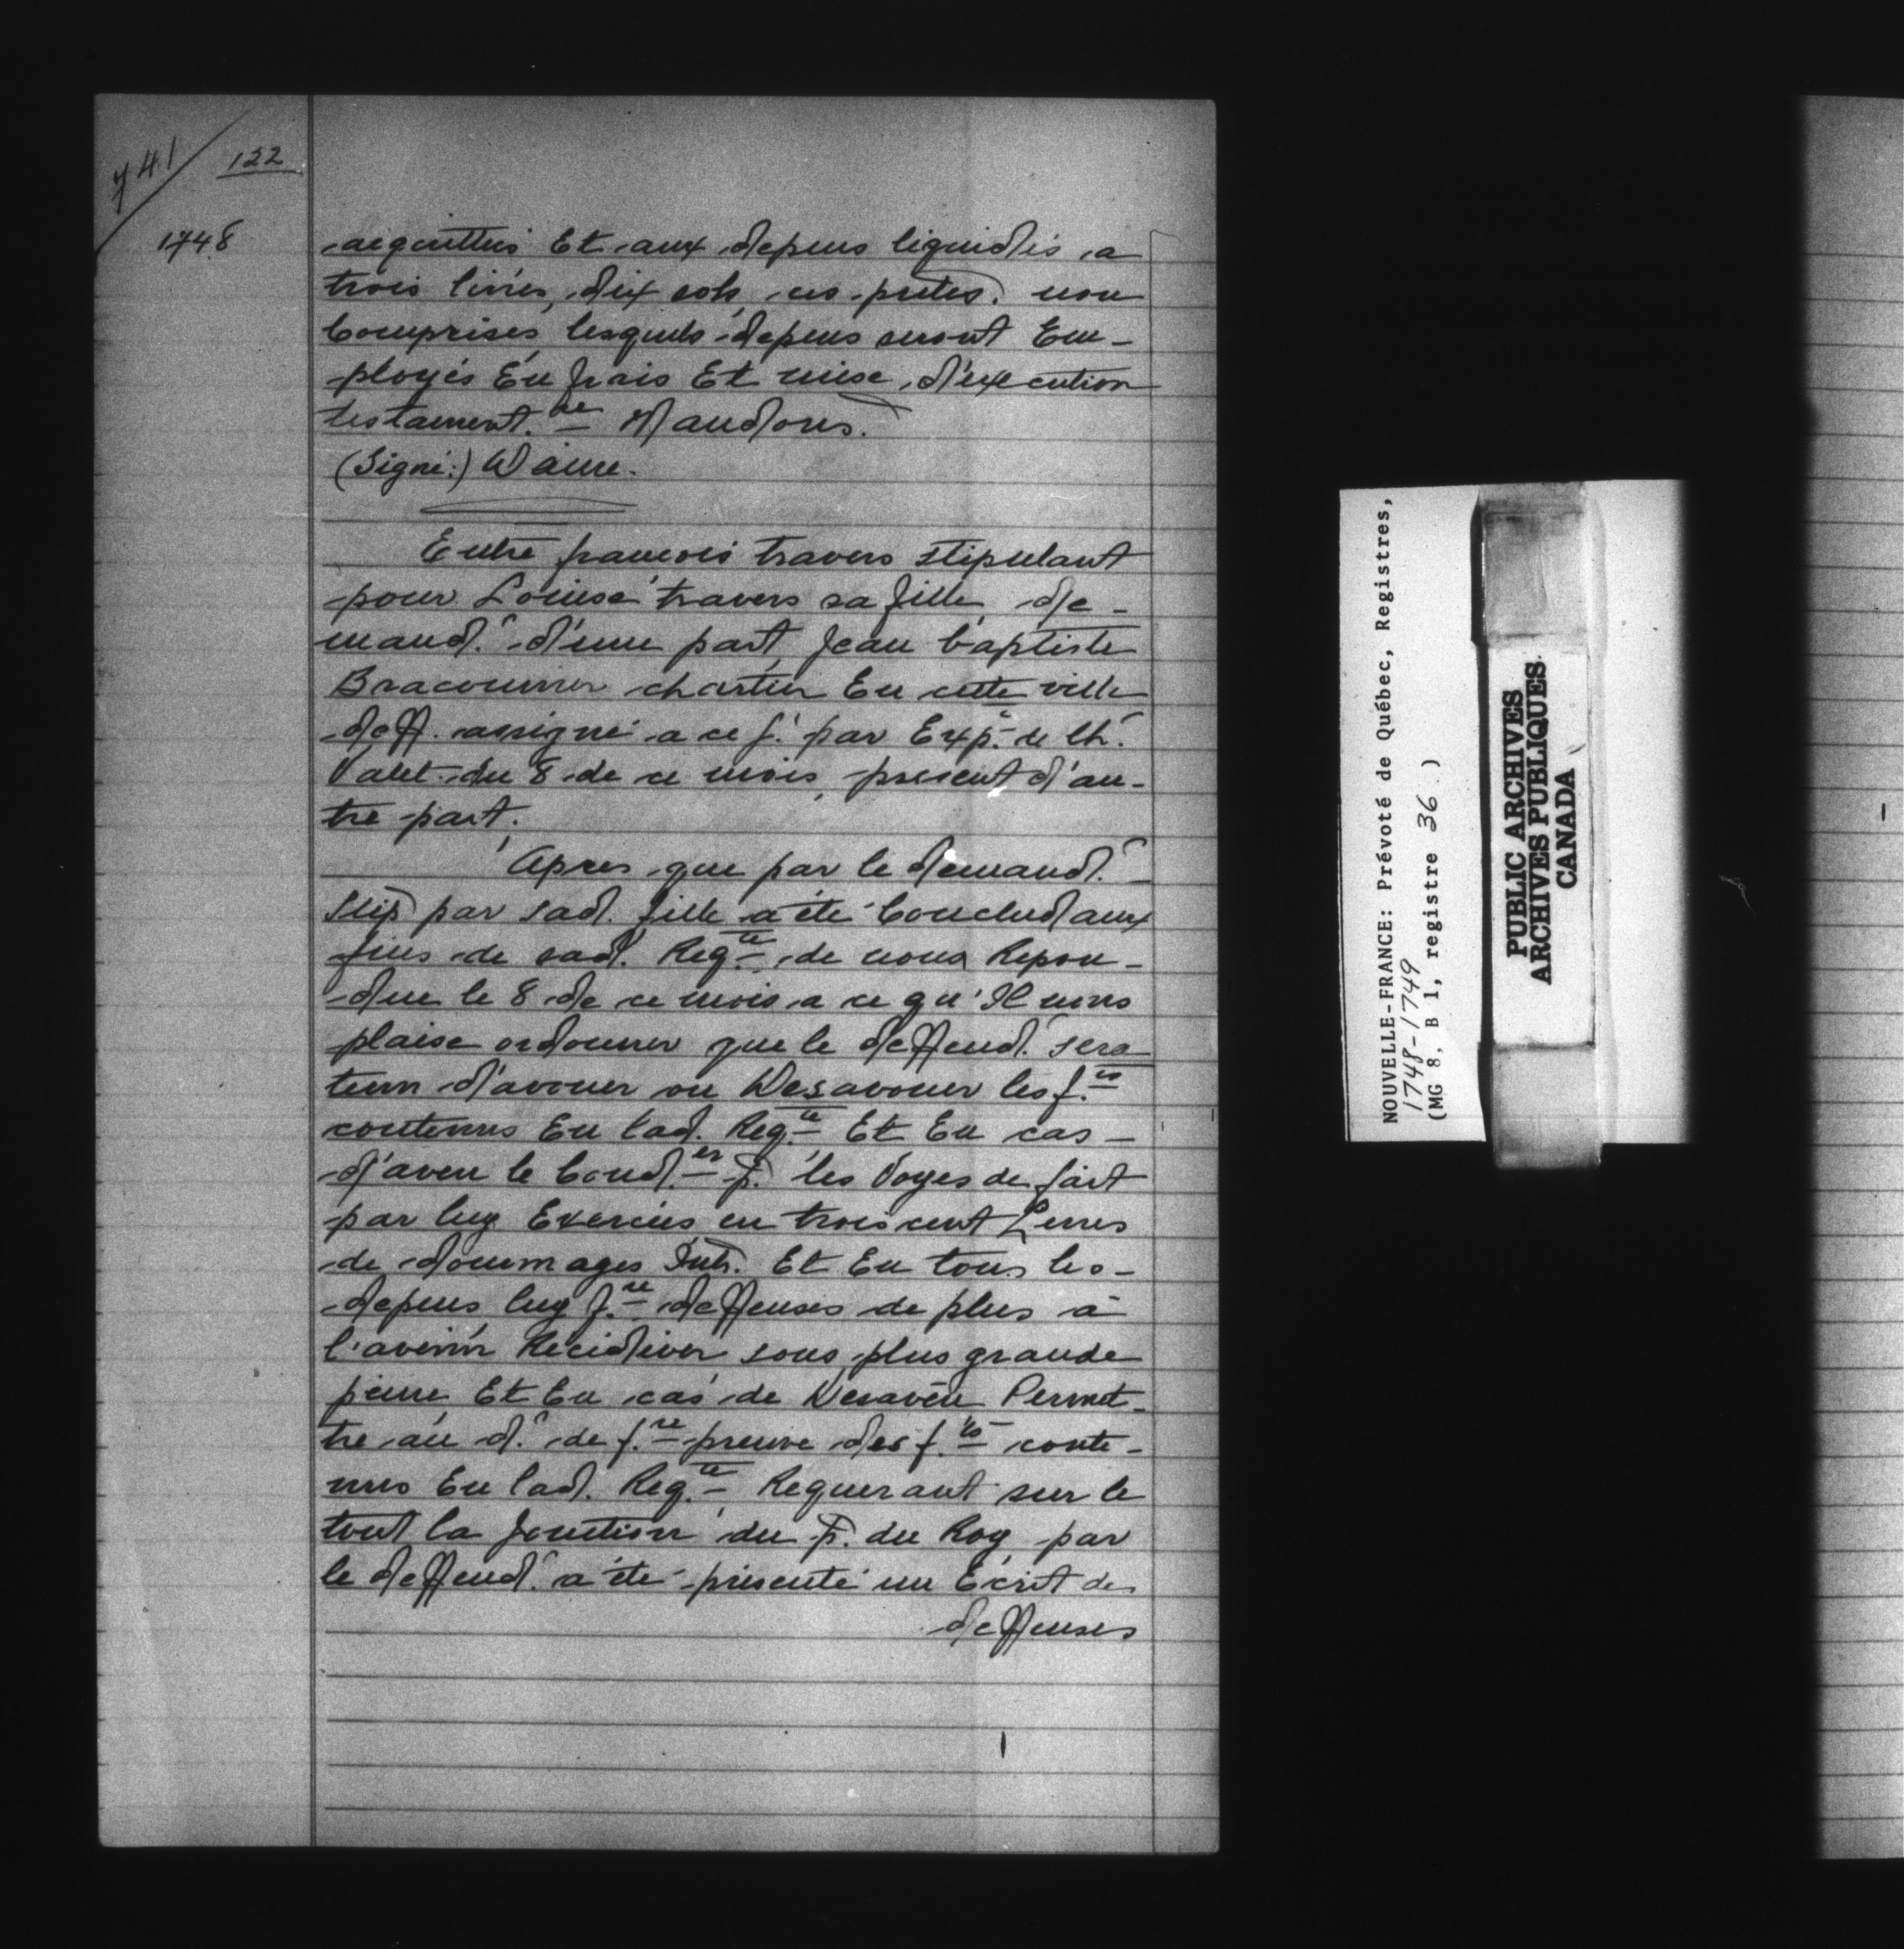 741
122
1748
acquittés Et aux depens liquidés a
trois livres, dix sols, ces pntes. non
Comprises, lesquels depens seront Em-
ployés En frais Et mise d'execution
testament.re Mandons.
(Signé:) Daine.
Entre francois travers stipulant
pour Louise travers sa fille de-
mand.r d'une part, Jean baptiste
Bracounier chartier En cette ville
deff. assigné a ce j. par Exp. de th.
Valet du 8 de ce mois, present d'au-
tre part.
Apres que par le demand.r
Stip par sad. fille a été Conclud aux
fins de sad. Reqte, de nous Repon-
due le 8 de ce mois a ce qu'Il nous
plaise ordonner que le deffend.r sera
tenu d'avouer ou Desavouer les f.ts
contenus En lad. Reqte Et En cas
d'aveu le Cond.er p. les Voyes de fait
par luy Exercées en trois cent Livres
de dommages Inth. Et En tous les
depens luy f.re deffenses de plus à
l'avenir Recidiver sous plus grande
peine Et En cas de Desaveu Permet-
tre au d.r de f.re preuve des f.ts conte-
nus En lad. Reqte Requerant sur le
tout la Jonction du p. du Roy par
le deffend.r a été présenté un Écrit de
deffenses
NOUVELLE-FRANCE: Prévoté de Québec, Registres,
1748-1749
(MG 8, B 1, registre 36.)
PUBLIC ARCHIVES
ARCHIVES PUBLIQUES
CANADA